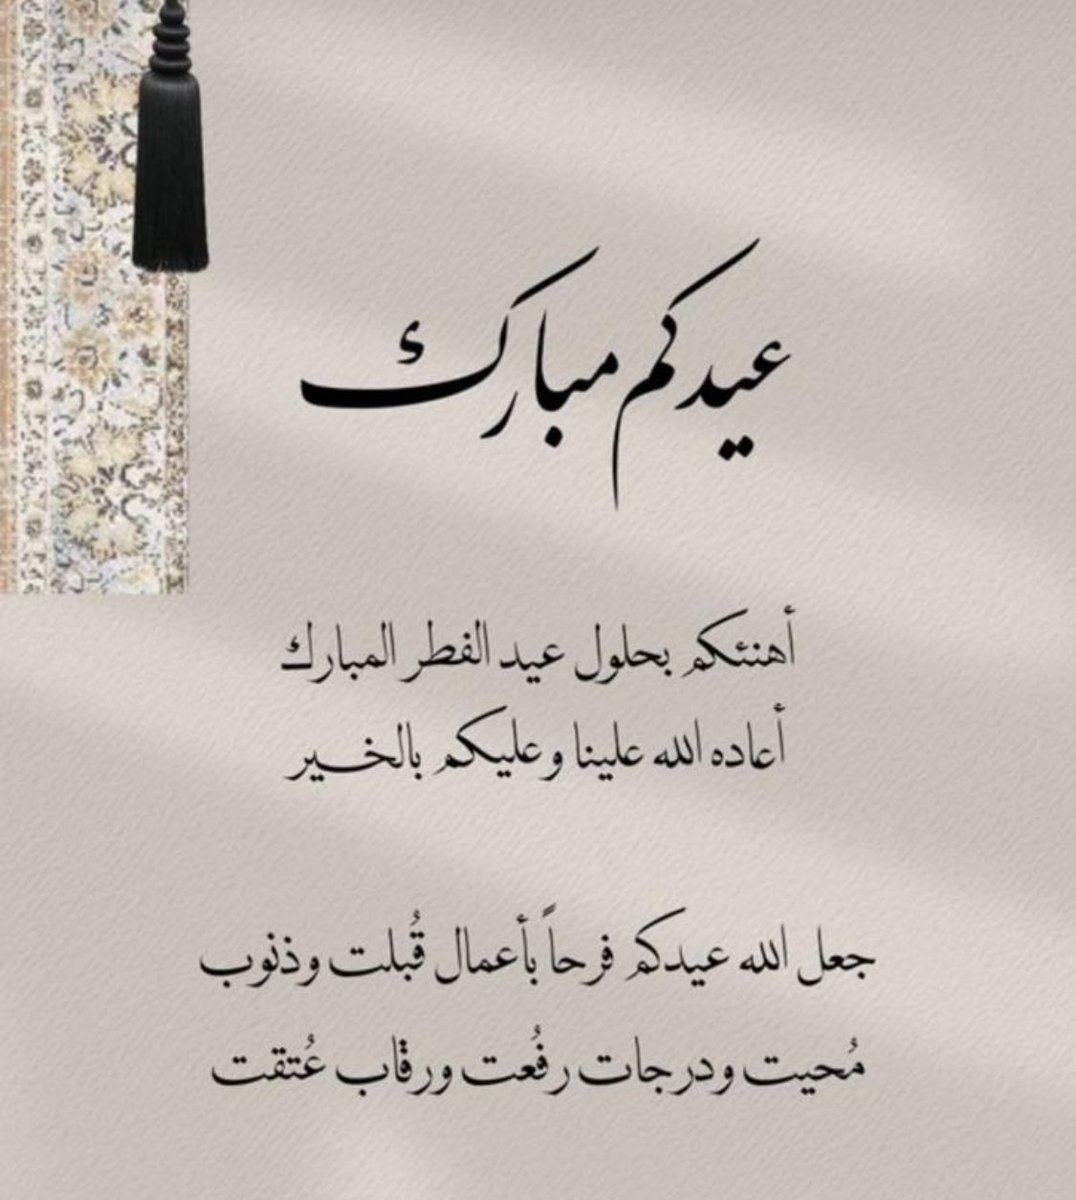 عيدكم مبارك
أهنئكم بحلول عيد الفطر المبارك
أعاده الله علينا وعليكم بالخير
جعل الله عيدكم فرحاً بأعمال قُبلت وذنوب
مُحيت ودرجات رفُعت ورقاب عُتقت